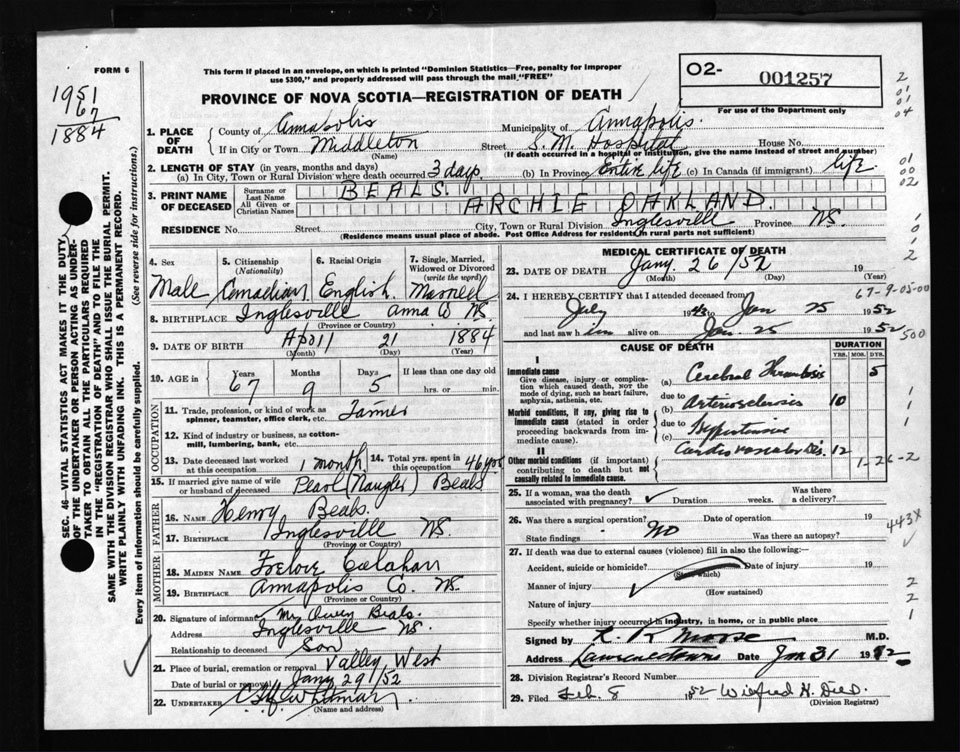 FORM 6
This form if placed in an envelope, on which is printed "Dominion Statistics—Free, penalty for improper
use $300," and properly addressed will pass through the mail "FREE"
PROVINCE OF NOVA SCOTIA—REGISTRATION OF DEATH
O2- 001257
For use of the Department only
1951
67
1884
2
01
01
04
1. PLACE OF DEATH
County of Annapolis Municipality of Annapolis.
If in City or Town Middleton (Name) Street S. M. Hospital House No.
(If death occurred in a hospital or institution, give the name instead of street and number)
2. LENGTH OF STAY (in years, months and days)
(a) In City, Town or Rural Division where death occurred 3 days. (b) In Province Entire life (c) In Canada (if immigrant) life
01
00
02
3. PRINT NAME OF DECEASED
Surname or Last Name BEALS.
All Given or Christian Names ARCHIE OAKLAND.
RESIDENCE No. Street City, Town or Rural Division Inglesville Province NS.
(Residence means usual place of abode. Post Office Address for residents in rural parts not sufficient)
4. Sex Male
5. Citizenship (Nationality) Canadian
6. Racial Origin English.
7. Single, Married, Widowed or Divorced (write the word) Married
8. BIRTHPLACE Inglesville Anna Co NS.
(Province or Country)
9. DATE OF BIRTH April 21 1884
(Month) (Day) (Year)
10. AGE in Years 67 Months 9 Days 5 If less than one day old hrs. or min.
OCCUPATION
11. Trade, profession, or kind of work as spinner, teamster, office clerk, etc. Farmer
12. Kind of industry or business, as cotton-mill, lumbering, bank, etc.
13. Date deceased last worked at this occupation 1 month.
14. Total yrs. spent in this occupation 46 yrs
15. If married give name of wife or husband of deceased Pearl (Naugler) Beals
FATHER
16. NAME Henry Beals.
17. BIRTHPLACE Inglesville NS.
(Province or Country)
MOTHER
18. MAIDEN NAME Calahan
19. BIRTHPLACE Annapolis Co. NS.
(Province or Country)
20. Signature of informant Mr Owen Beals.
Address Inglesville NS.
Relationship to deceased Son
21. Place of burial, cremation or removal Valley West
Date of burial or removal Jany 29/52
22. UNDERTAKER Whitman
(Name and address)
MEDICAL CERTIFICATE OF DEATH
23. DATE OF DEATH Jany. 26/52 19
(Month) (Day) (Year)
24. I HEREBY CERTIFY that I attended deceased from
67-9-05-00
July 1943 to Jan 25 1952
and last saw him alive on Jan. 25 1952
500
CAUSE OF DEATH
DURATION
YRS. MOS. DYS.
I
Immediate cause
Give disease, injury or complication which caused death, NOT the mode of dying, such as heart failure, asphyxia, asthenia, etc.
(a) Cerebral Thrombosis 5
due to
Morbid conditions, if any, giving rise to immediate cause (stated in order proceeding backwards from immediate cause).
(b) Arterosclerosis 10
due to
(c) Hypertensive
II
Other morbid conditions (if important) contributing to death but not causally related to immediate cause.
Cardiovascular Dis. 12
1-26-2
25. If a woman, was the death associated with pregnancy? Duration weeks. Was there a delivery?
26. Was there a surgical operation? No Date of operation 19
State findings Was there an autopsy?
443X
27. If death was due to external causes (violence) fill in also the following:—
Accident, suicide or homicide? (State which) Date of injury 19
Manner of injury
(How sustained)
Nature of injury
Specify whether injury occurred in industry, in home, or in public place
Signed by L. R. Morse M.D.
Address Lawrencetown Date Jan 31 1952
28. Division Registrar's Record Number
29. Filed Feb. 8 1952 Wilfred H.
(Division Registrar)
SEC. 46—VITAL STATISTICS ACT MAKES IT THE DUTY
OF THE UNDERTAKER OR PERSON ACTING AS UNDER-
TAKER TO OBTAIN ALL THE PARTICULARS REQUIRED
IN THE "REGISTRATION OF DEATH" AND TO FILE THE
SAME WITH THE DIVISION REGISTRAR WHO SHALL ISSUE THE BURIAL PERMIT.
WRITE PLAINLY WITH UNFADING INK. THIS IS A PERMANENT RECORD.
Every item of information should be carefully supplied. (See reverse side for instructions.)